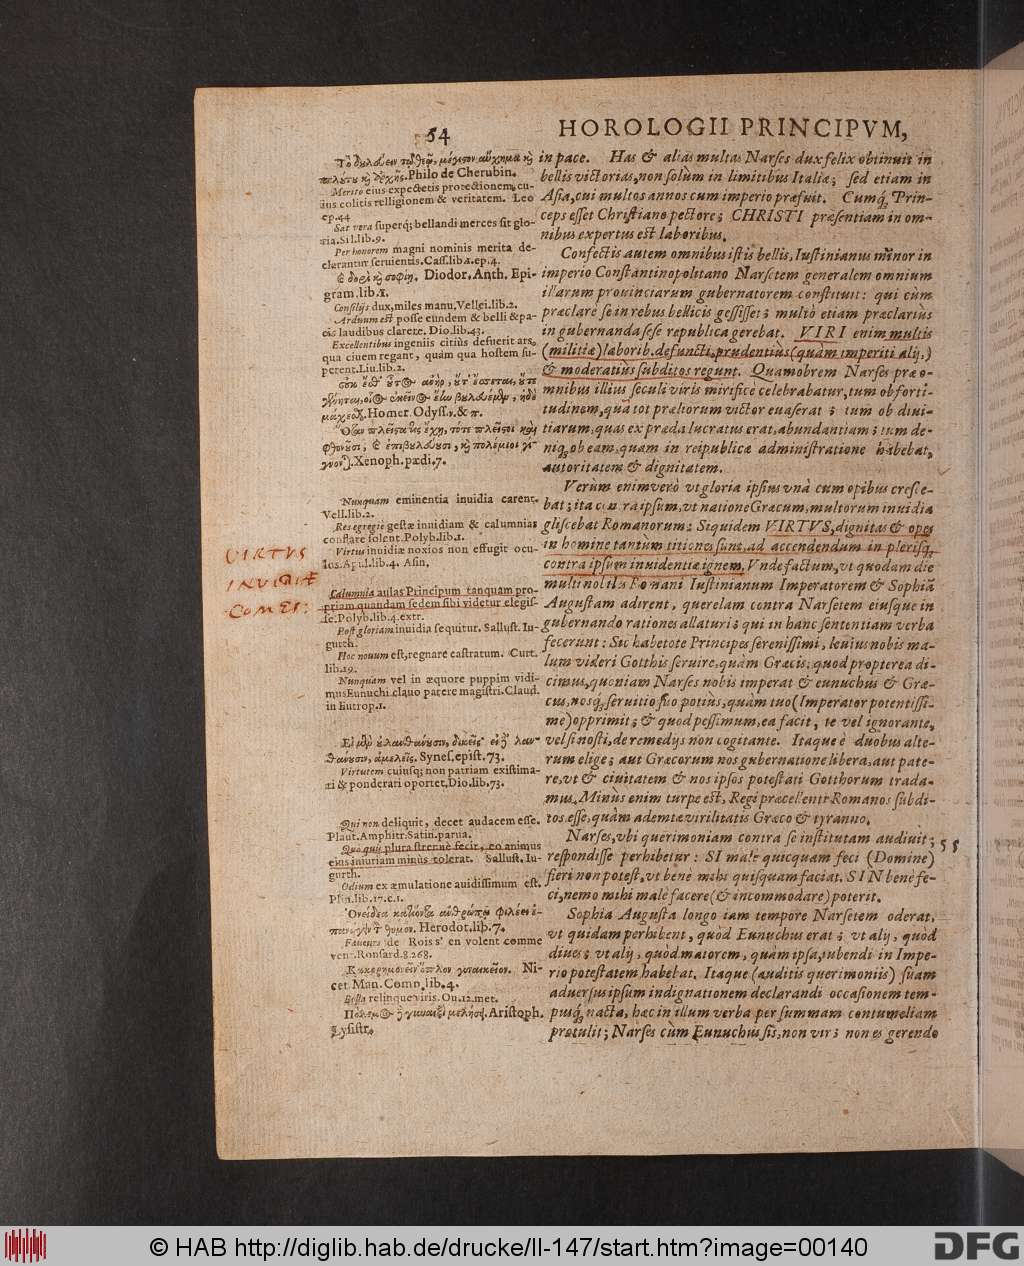 54
HOROLOGII PRINCIPVM,
Philo de Cherubin.
Merito eius expectetis protectionem, cu-
ius colitis relligionem & veritatem. Leo
ep. 44
Sat vera superq; bellandi merces sit glo-
ria. Sil. lib. 9.
Per honorem magni nominis merita de-
clarantur seruientis. Cass. lib. 2. ep. 4.
Diodor. Anth. Epi-
gram. lib. 1.
Consilijs dux, miles manu. Vellei. lib. 2.
Arduum est posse eundem & belli & pa-
cis laudibus clarere. Dio. lib. 43.
Excellentibus ingeniis citiùs defuerit ars,
qua ciuem regant, quàm qua hostem su-
perent. Liu. lib. 2.
Homer. Odyss. π.
Xenoph. pædi. 7.
Nunquam eminentia inuidia carent.
Vell. lib. 2.
Res egregiè gestæ inuidiam & calumnias
conflare solent. Polyb. lib. 1.
Virtus inuidiæ noxios non effugit ocu-
los. Apul. lib. 4. Asin.
VIRTVS
INVIDIÆ
COMES:
Calumnia aulas Principum tanquam pro-
priam quandam sedem sibi videtur elegis-
se. Polyb. lib. 4. extr.
Post gloriam inuidia sequitur. Sallust. Iu-
gurth.
Hoc nouum est, regnare castratum. Curt.
lib. 19.
Nunquam vel in æquore puppim vidi-
mus Eunuchi clauo parere magistri. Claud.
in Eutrop. 1.
Synes. epist. 73.
Virtutem cuiusq; non patriam existima-
ri & ponderari oportet. Dio. lib. 73.
Qui non deliquit, decet audacem esse.
Plaut. Amphitr. Satin. parua.
Quo quis plura strennè fecit, eo animus
eius iniuriam minùs tolerat. Sallust. Iu-
gurth.
Odium ex æmulatione auidissimum est.
Plin. lib. 17. c. 1.
Herodot. lib. 7.
Faueurs de Rois s'en volent comme
vent. Ronsard. 8. 268.
Ni-
cet. Man. Comn. lib. 4.
Bella relinque viris. Ou. 12. met.
Aristoph.
Lysistr.
in pace. Has & alias multas Narses dux felix obtinuit in
bellis victorias, non solùm in limitibus Italiæ; sed etiam in
Asia, cui multos annos cum imperio præfuit. Cumq; Prin-
ceps esset Christiano pectore; CHRISTI præsentiam in om-
nibus expertus est laboribus.
Confectis autem omnibus istis bellis, Iustinianus minor in
imperio Constantinopolitano Narsetem generalem omnium
illarum prouinciarum gubernatorem constituit: qui cùm
præclarè se in rebus bellicis gessisset; multò etiam præclariùs
in gubernanda sese republica gerebat. VIRI enim multis
(militiæ) laborib. defuncti, prudentiùs (quàm imperiti alij,)
& moderatiùs subditos regunt. Quamobrem Narses præ o-
mnibus illius seculi viris mirificè celebrabatur, tum ob forti-
tudinem, qua tot præliorum victor euaserat; tum ob diui-
tiarum, quas ex præda lucratus erat, abundantiam; tum de-
niq; ob eam, quam in reipublicæ administratione habebat,
autoritatem & dignitatem.
Verùm enimuerò vt gloria ipsius vnà cum opibus cresce-
bat; ita contra ipsum, vt natione Græcum, multorum inuidia
gliscebat Romanorum: Siquidem VIRTVS, dignitas & opes
in homine tantùm titiones sunt, ad accendendum in plerisq;
contra ipsum inuidentiæ ignem. Vnde factum, vt quodam die
multi nobiles Romani Iustinianum Imperatorem & Sophiã
Augustam adirent, querelam contra Narsetem eiusque in
gubernando rationes allaturi; qui in hanc sententiam verba
fecerunt: Sic habetote Principes serenissimi, leuius nobis ma-
lum videri Gotthis seruire, quàm Græcis: quod propterea di-
cimus, quoniam Narses nobis imperat & eunuchus & Græ-
cus, nosq; seruitio suo potiùs, quàm tuo (Imperator potentissi-
me) opprimit; & quod pessimum, ea facit, te vel ignorante,
vel si nosti, de remedijs non cogitante. Itaque è duobus alte-
rum elige; aut Græcorum nos gubernatione libera, aut pate-
re, vt & ciuitatem & nos ipsos potestati Gotthorum trada-
mus. Minùs enim turpe est, Regi præcellenti Romanos subdi-
tos esse, quàm ademtæ virilitatis Græco & tyranno.
Narses, vbi querimoniam contra se institutam audiuit;
55
respondisse perhibetur: SI malè quicquam feci (Domine)
fieri non potest, vt benè mihi quisquam faciat. SIN benè fe-
ci, nemo mihi malè facere (& incommodare) poterit.
Sophia Augusta longo iam tempore Narsetem oderat,
vt quidam perhibent, quòd Eunuchus erat; vt alij, quòd
diues; vt alij, quòd maiorem, quàm ipsa, iubendi in Impe-
rio potestatem habebat. Itaque (auditis querimoniis) suam
aduersus ipsum indignationem declarandi occasionem tem-
pusq; nacta, hæc in illum verba per summam contumeliam
protulit; Narses cùm Eunuchus sis, non vir; non es gerendo
© HAB http://diglib.hab.de/drucke/ll-147/start.htm?image=00140
DFG